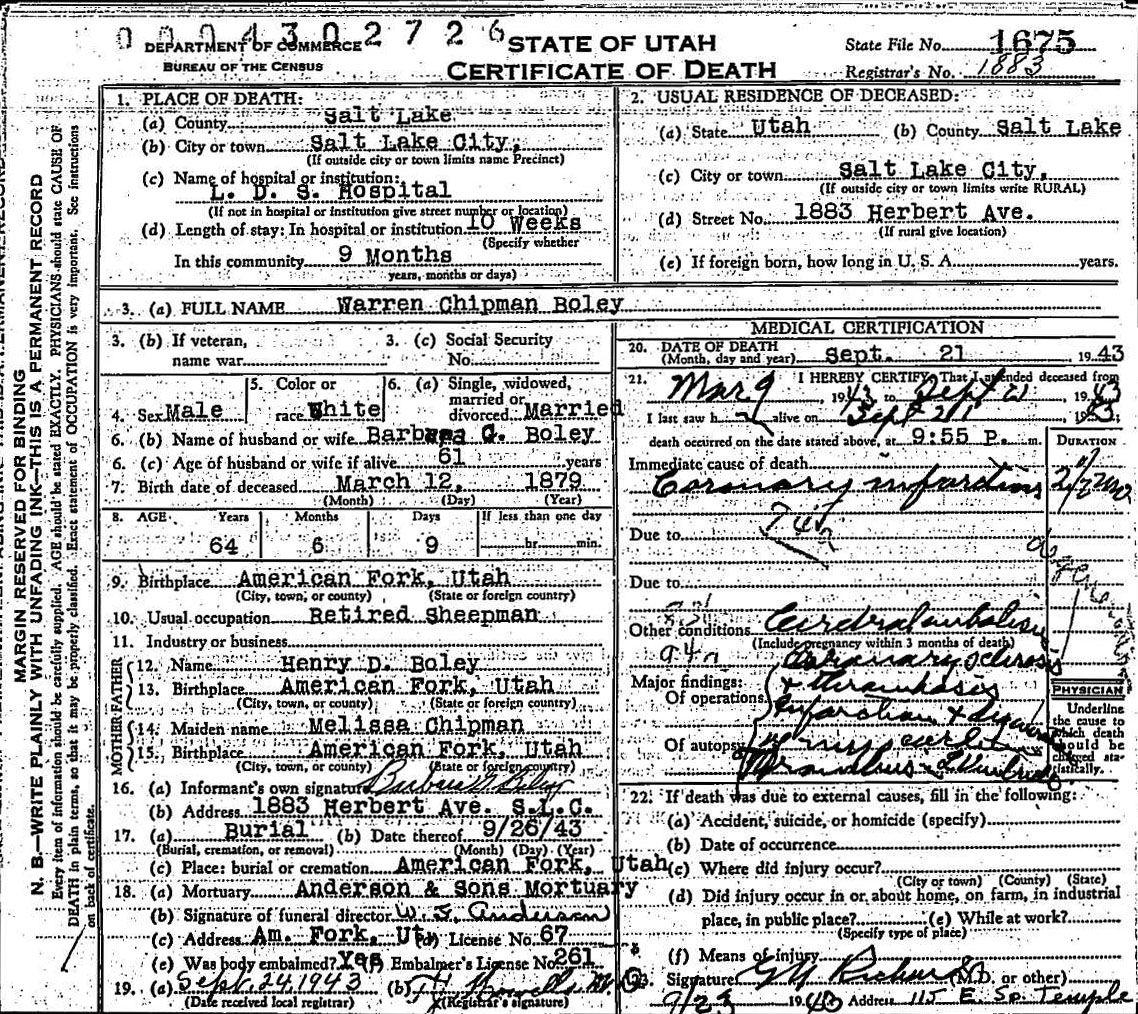 0 0 0 4 3 0 2 7 2 6
DEPARTMENT OF COMMERCE
BUREAU OF THE CENSUS
STATE OF UTAH
CERTIFICATE OF DEATH
State File No. 1675
Registrar's No. 1883
MARGIN RESERVED FOR BINDING
N. B.—WRITE PLAINLY WITH UNFADING INK—THIS IS A PERMANENT RECORD
Every item of information should be carefully supplied. AGE should be stated EXACTLY. PHYSICIANS should state CAUSE OF
DEATH in plain terms, so that it may be properly classified. Exact statement of OCCUPATION is very important. See instructions
on back of certificate.
1. PLACE OF DEATH:
(a) County Salt Lake
(b) City or town Salt Lake City,
(If outside city or town limits name Precinct)
(c) Name of hospital or institution:
L. D. S. Hospital
(If not in hospital or institution give street number or location)
(d) Length of stay: In hospital or institution 10 Weeks
(Specify whether
In this community 9 Months
years, months or days)
2. USUAL RESIDENCE OF DECEASED:
(a) State Utah (b) County Salt Lake
(c) City or town Salt Lake City,
(If outside city or town limits write RURAL)
(d) Street No. 1883 Herbert Ave.
(If rural give location)
(e) If foreign born, how long in U. S. A. years.
3. (a) FULL NAME Warren Chipman Boley
3. (b) If veteran, name war
3. (c) Social Security No.
4. Sex Male
5. Color or race White
6. (a) Single, widowed, married or divorced Married
6. (b) Name of husband or wife Barbara G. Boley
6. (c) Age of husband or wife if alive 61 years
7. Birth date of deceased March 12, 1879
(Month) (Day) (Year)
8. AGE Years Months Days If less than one day
64 6 9 hr. min.
9. Birthplace American Fork, Utah
(City, town, or county) (State or foreign country)
10. Usual occupation Retired Sheepman
11. Industry or business
FATHER
12. Name Henry D. Boley
13. Birthplace American Fork, Utah
(City, town, or county) (State or foreign country)
MOTHER
14. Maiden name Melissa Chipman
15. Birthplace American Fork, Utah
(City, town, or county) (State or foreign country)
16. (a) Informant's own signature Barbara G. Boley
(b) Address 1883 Herbert Ave. S.L.C.
17. (a) Burial (b) Date thereof 9/26/43
(Burial, cremation, or removal) (Month) (Day) (Year)
(c) Place: burial or cremation American Fork, Utah
18. (a) Mortuary Anderson & Sons Mortuary
(b) Signature of funeral director W. S. Anderson
(c) Address Am. Fork, Ut. (d) License No. 67
(e) Was body embalmed? Yes (f) Embalmer's License No. 261
19. (a) Sept. 24, 1943 (b)
(Date received local registrar) (Registrar's signature)
MEDICAL CERTIFICATION
20. DATE OF DEATH
(Month, day and year) Sept. 21 1943
21. I HEREBY CERTIFY, That I attended deceased from
Mar 9 1943 to Sept 21 1943
I last saw h alive on Sept 21 1943;
death occurred on the date stated above, at 9:55 P. m.
DURATION
Immediate cause of death
Coronary infarction 2 1/2 mo
Due to
Due to
94a
Other conditions Cerebral embolism
(Include pregnancy within 3 months of death)
Major findings:
Of operations
Of autopsy
Coronary sclerosis
& thrombosis
PHYSICIAN
Underline the cause to which death should be charged statistically.
22. If death was due to external causes, fill in the following:
(a) Accident, suicide, or homicide (specify)
(b) Date of occurrence
(c) Where did injury occur?
(City or town) (County) (State)
(d) Did injury occur in or about home, on farm, in industrial
place, in public place? (e) While at work?
(Specify type of place)
(f) Means of injury
23. Signature G Richards (M.D. or other)
9/23 1943 Address 115 E. So. Temple